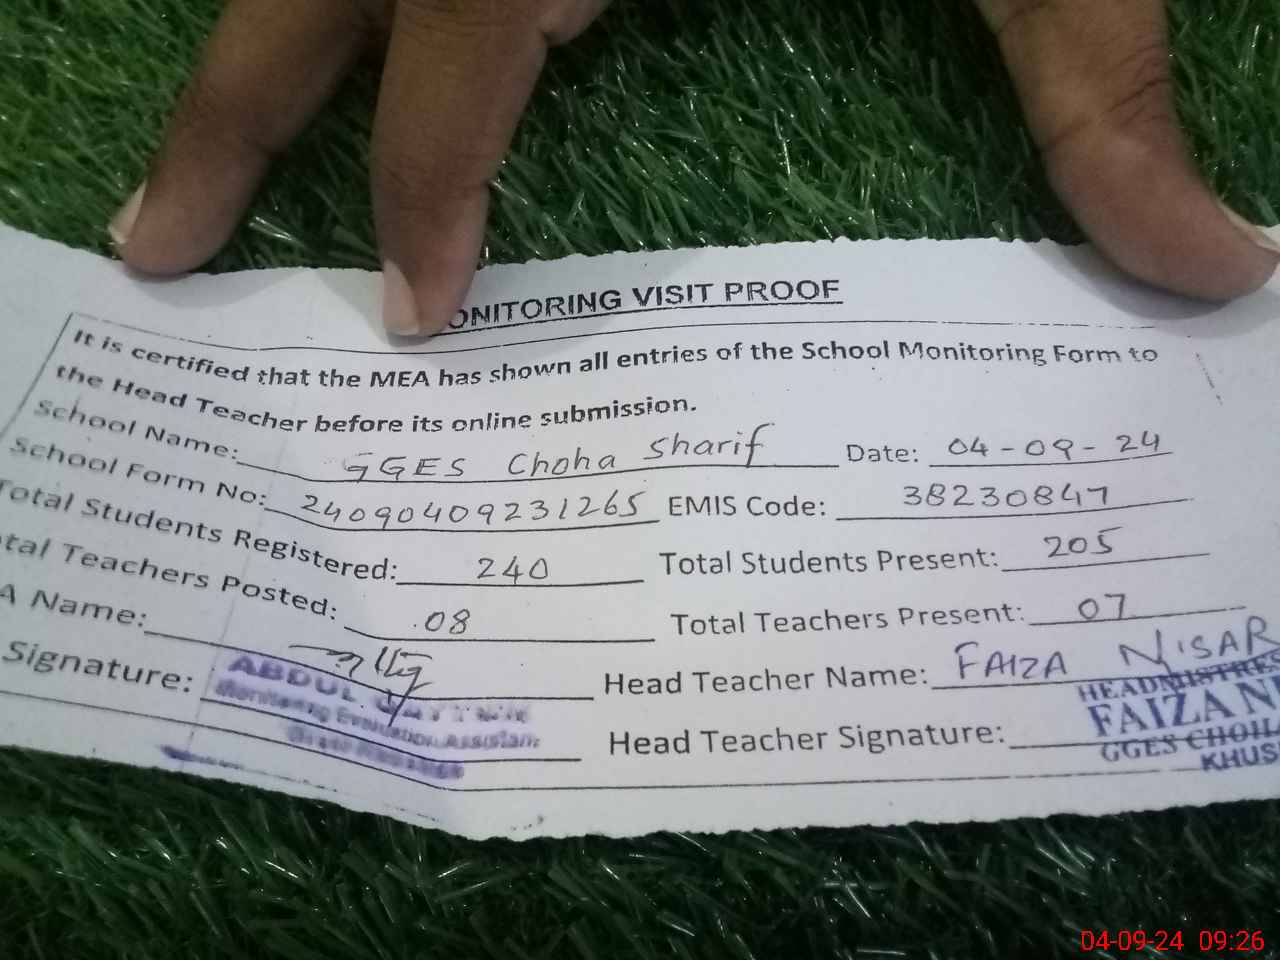 ONITORING VISIT PROOF
It is certified that the MEA has shown all entries of the School Monitoring Form to
the Head Teacher before its online submission.
School Name: GGES Choha Sharif Date: 04-09-24
School Form No: 24090409231265 EMIS Code: 38230847
Total Students Registered: 240 Total Students Present: 205
tal Teachers Posted: 08 Total Teachers Present: 07
A Name: Head Teacher Name: FAIZA NISAR
Signature: Head Teacher Signature:
ABDUL
Monitoring Evaluation Assistant
HEADMISTRES
FAIZA NI
GGES CHOH
KHUS
04-09-24 09:26